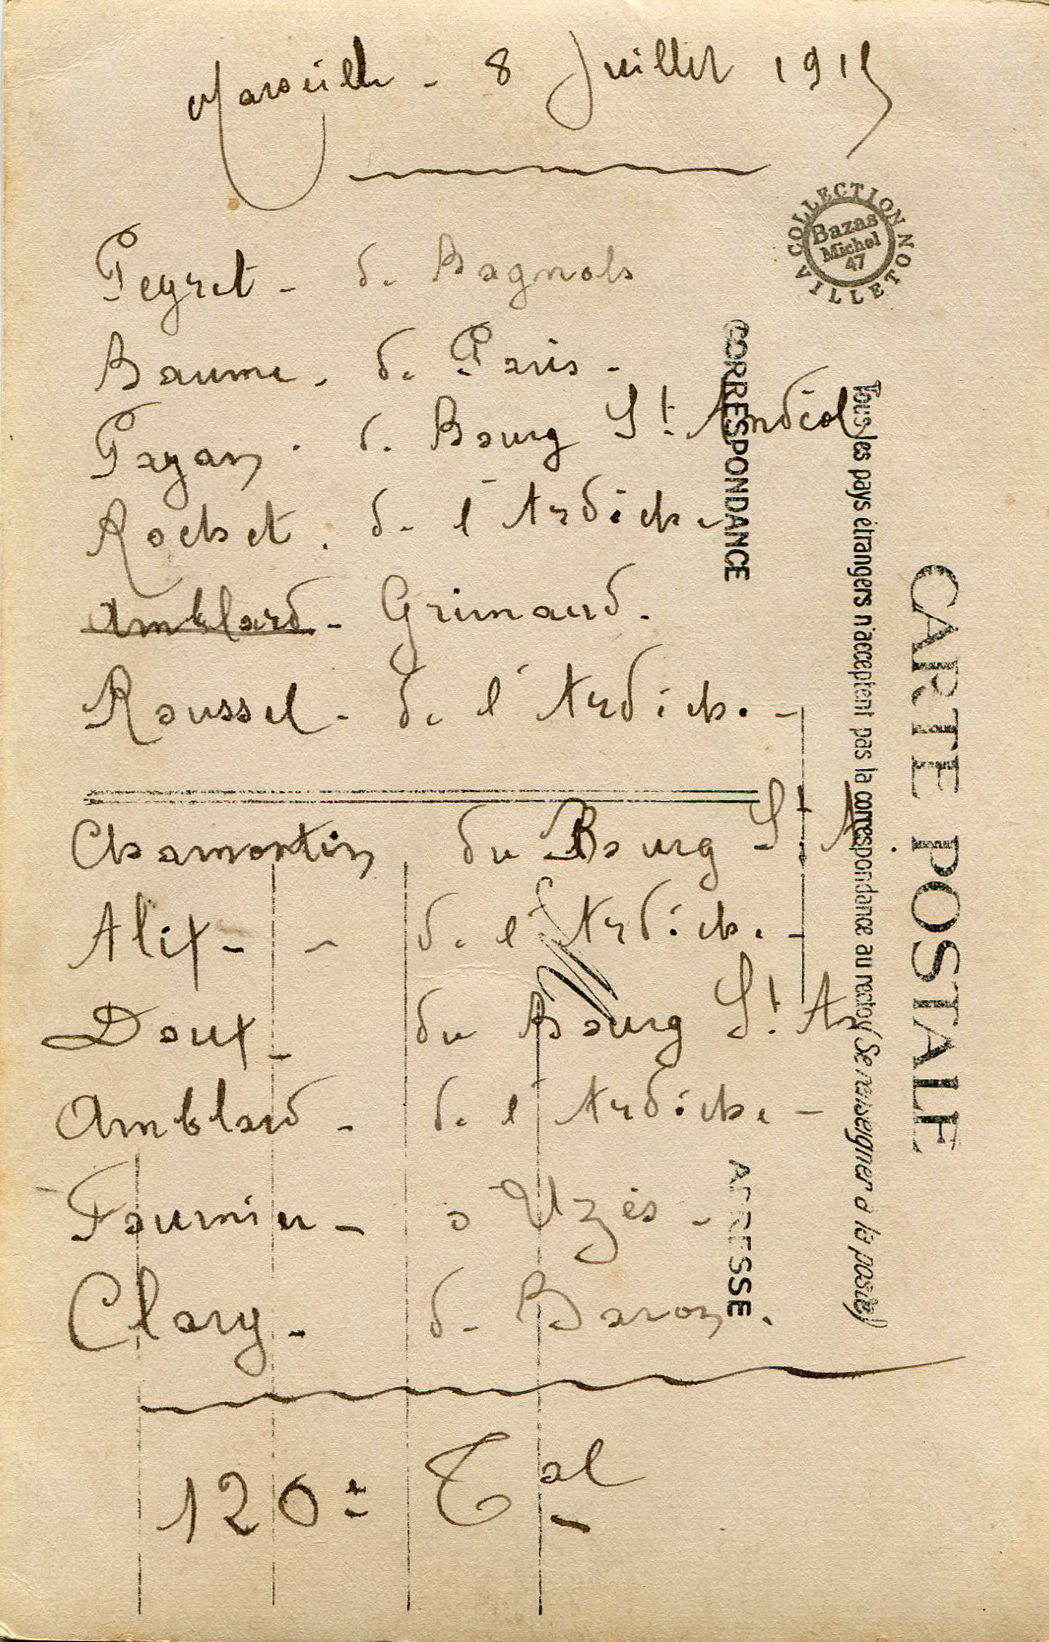 Marseille - 8 Juillet 1915
Peyret - de Bagnols
Baume - de Paris -
Pagan - de Bourg St Andéol
Rochet - de l'Ardèche
Amblard - Grimaud.
Roussel - de l'Ardèche -
Chamontin du Bourg St A.
Alix - - de l'Ardèche -
Doux - du Bourg St An
Amblard - de l'Ardèche -
Fournier - à Uzès -
Clary - de Baron.
120e Tal
COLLECTION
Bazas
Michel
47
VILLETON
CORRESPONDANCE
ADRESSE
Tous les pays étrangers n'acceptent pas la correspondance au recto (Se renseigner à la poste)
CARTE POSTALE